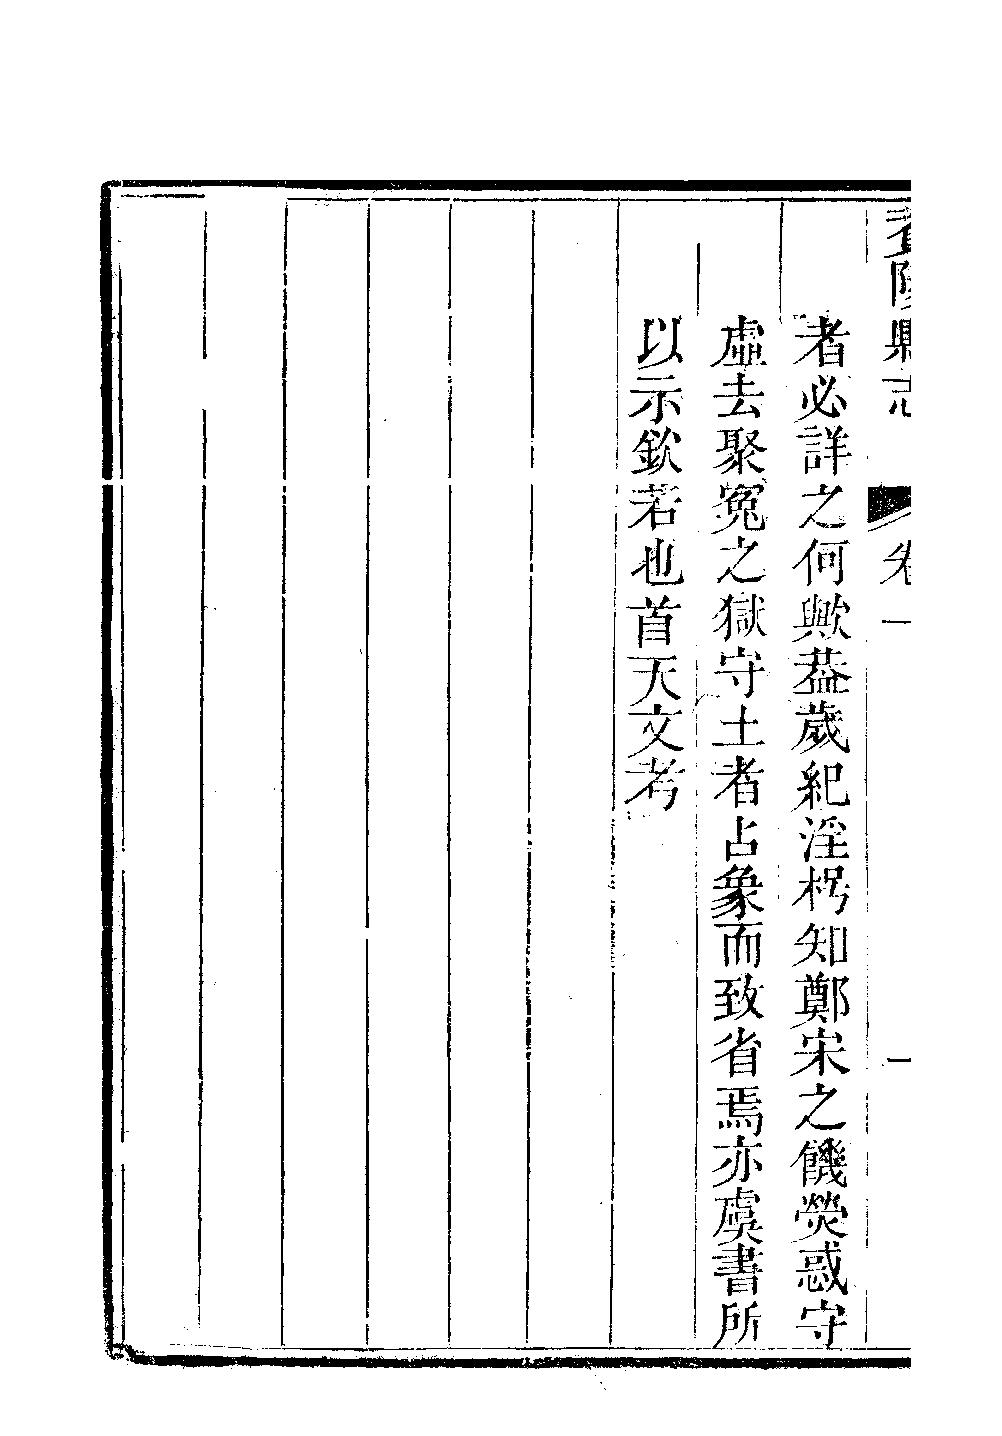 陽縣志 卷一 一
者必詳之何歟葢歲紀淫枵知鄭宋之饑熒惑守
虛去聚冤之獄守土者占象而致省焉亦虞書所
以示欽若也首天文考